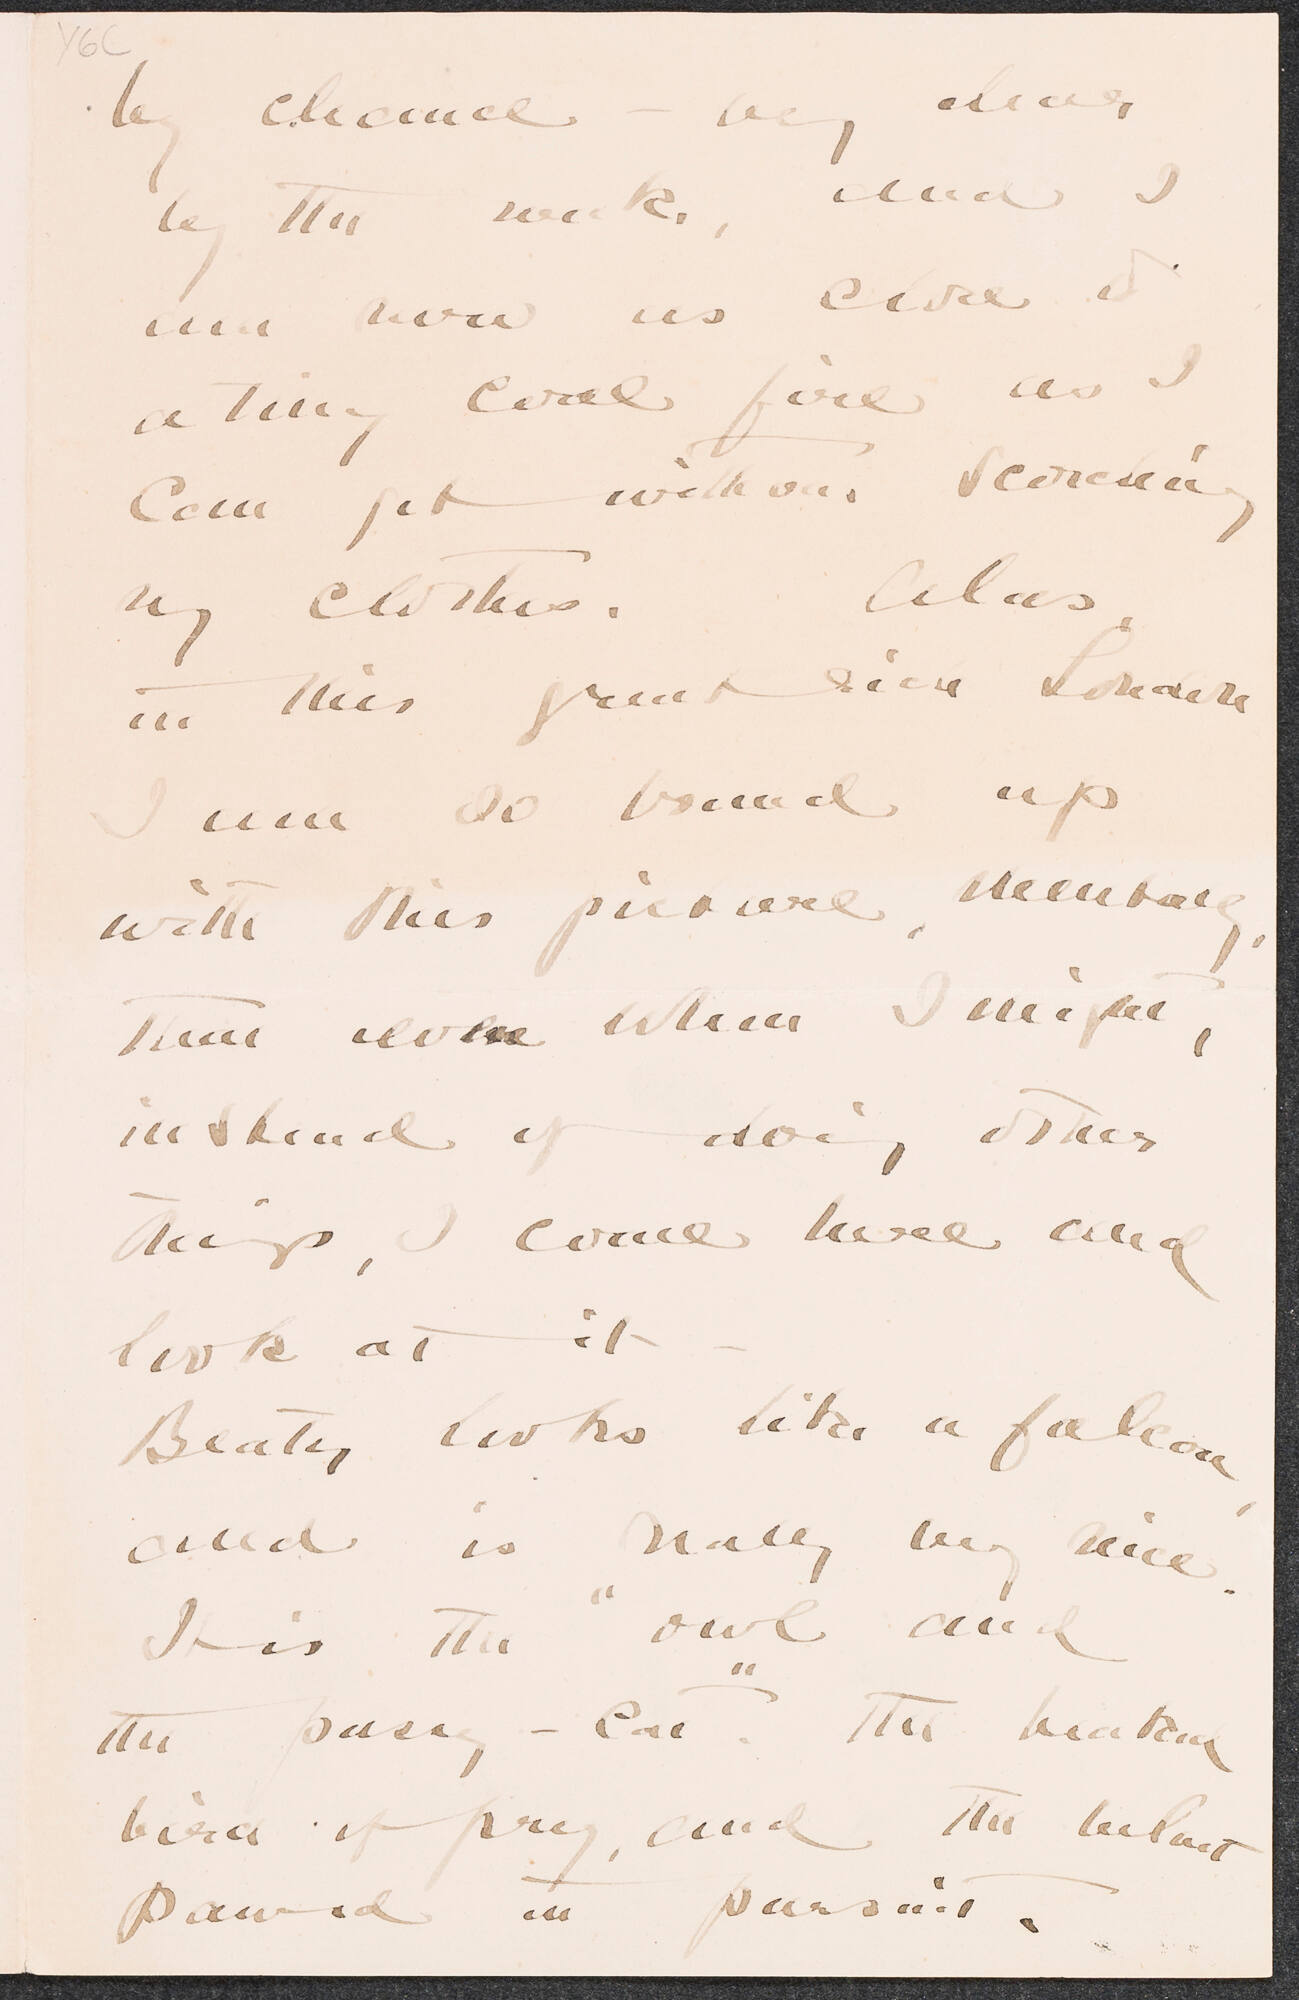 Y6C
by chance – my dear
by the week, and I
am now as close to
a tiny coal fire as I
can get without scorching
my clothes. Alas,
in this great rich London
I am so bound up
with this picture,
that even when I might,
instead of doing other
things, I come here and
look at it –
Beaty looks like a falcon,
and is really very nice.
It is the "owl and
the pussy-cat". The beaked
bird of prey, and the velvet
pawed in pursuit.